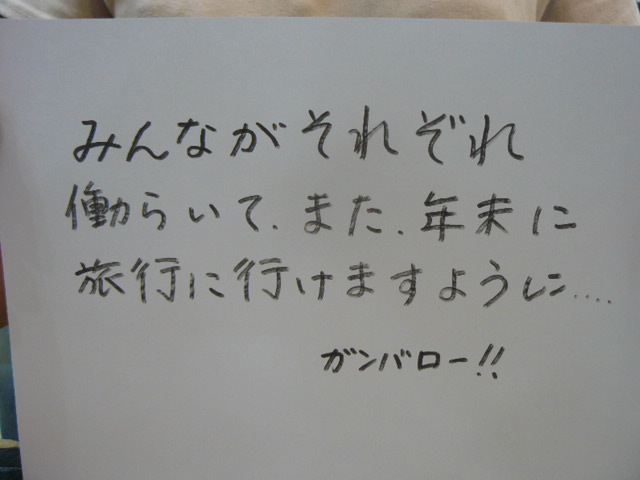 みんながそれぞれ
働らいて、また、年末に
旅行に行けますように....
ガンバロー!!